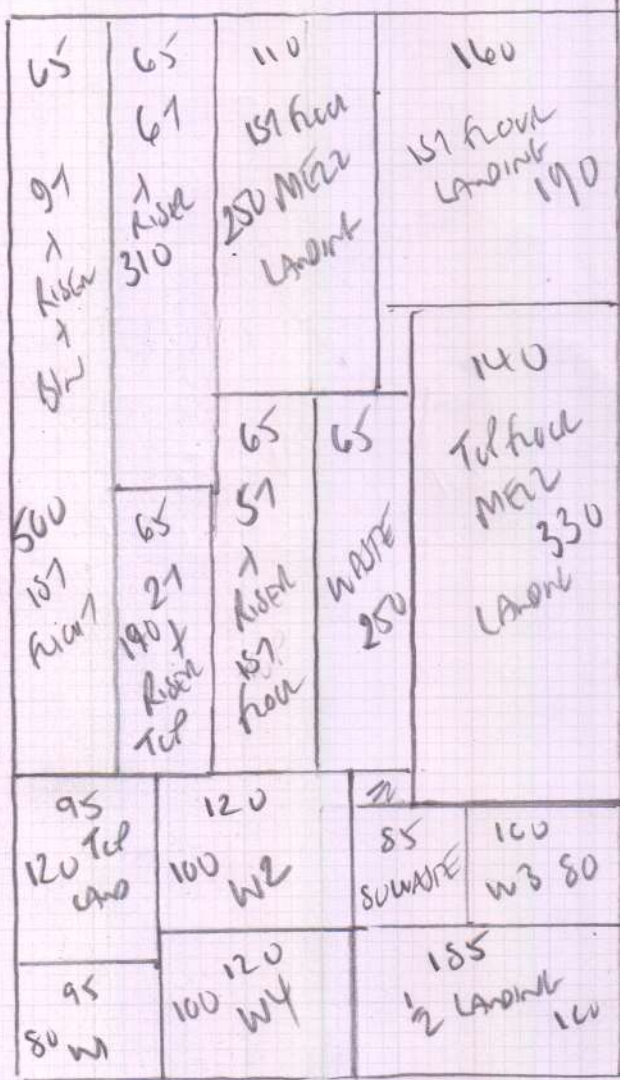 65
9T
X
RISER
+
B/N
500
1ST
FLIGHT
65
6T
X
RISER
310
110
1ST FLOOR
250 MEZZ
LANDING
160
1ST FLOOR
LANDING
190
65
2T
190 X
RISER
TOP
65
5T
X
RISER
1ST
FLOOR
65
WASTE
250
140
TOP FLOOR
MEZZ
330
LANDING
95
120 TOP
LAND
120
100 W2
85
80 WASTE
100
W3 80
95
80 W1
120
100 W4
185
1/2 LANDING
100